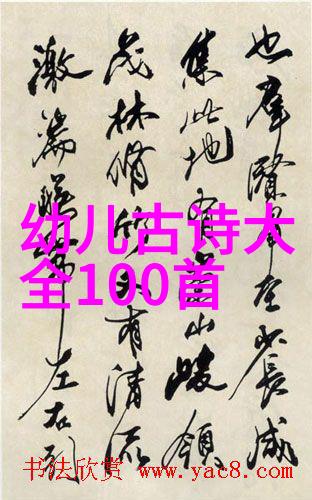 也群贤毕至少长咸
集此地有崇山峻领
茂林脩竹又有清流
激湍暎带左右引
幼儿古诗大
全100首
书法欣赏 www.yac8.com